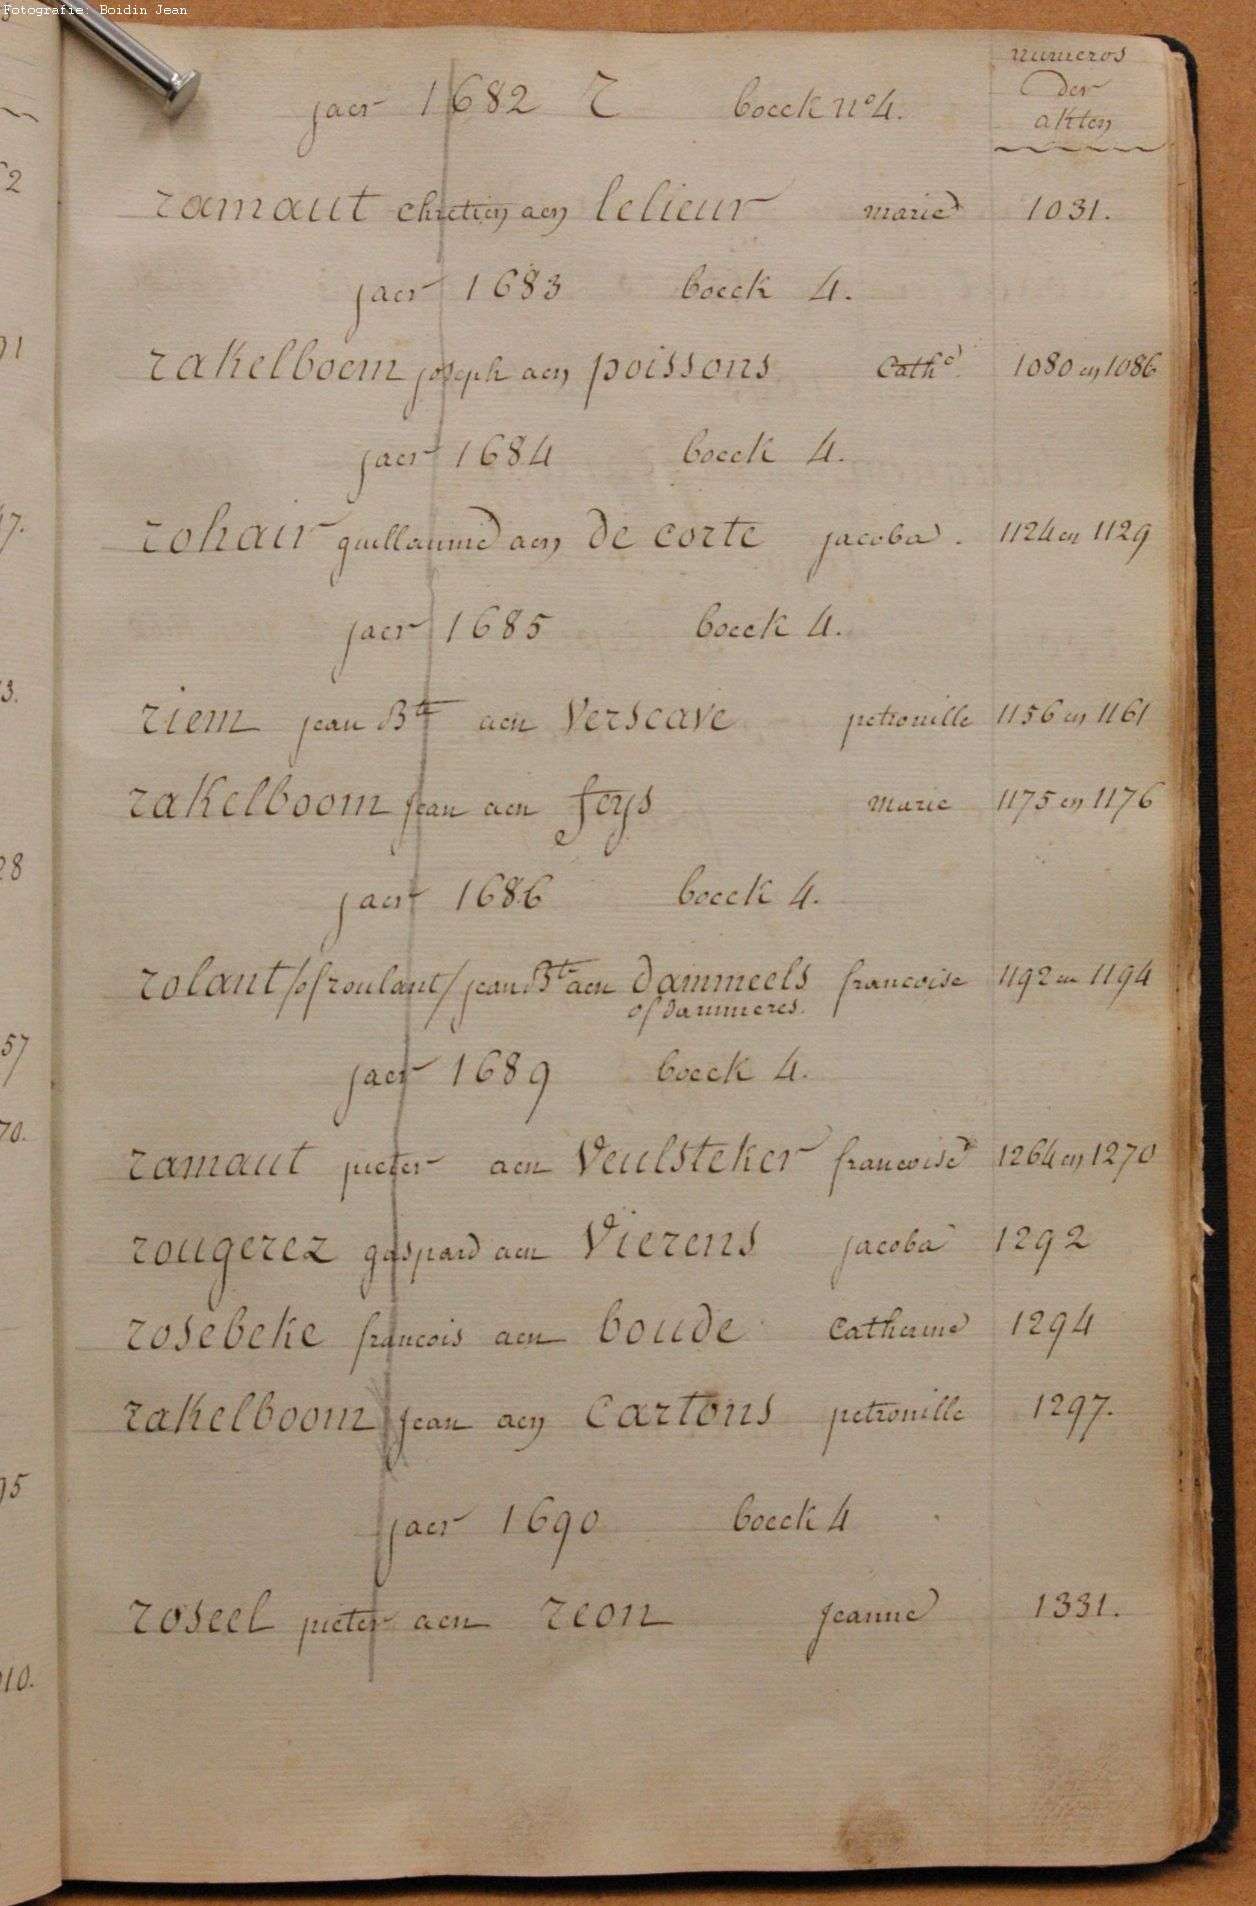 Fotografie: Boidin Jean
numeros
der
akten
jaer 1682 R boeck n° 4.
ramaut chretien aen lelieur marie 1031.
jaer 1683 boeck 4.
rakelboem joseph aen poissons Cathe 1080 en 1086
jaer 1684 boeck 4.
rohair guillaume aen de corte jacoba. 1124 en 1129
jaer 1685 boeck 4.
riem jean Bte aen Verscave petronille 1156 en 1161
rakelboom jean aen feys marie 1175 en 1176
jaer 1686 boeck 4.
rolant /of roulant/ jean Bte aen dammeels francoise 1192 en 1194
of dammeres.
jaer 1689 boeck 4.
ramaut pieter aen Veulsteker francoise 1264 en 1270
rougerez gaspard aen Vierens jacoba 1292
rosebeke francois aen boude Catherine 1294
rakelboom jean aen Cartons petronille 1297.
jaer 1690 boeck 4
roseel pieter aen reon jeanne 1331.